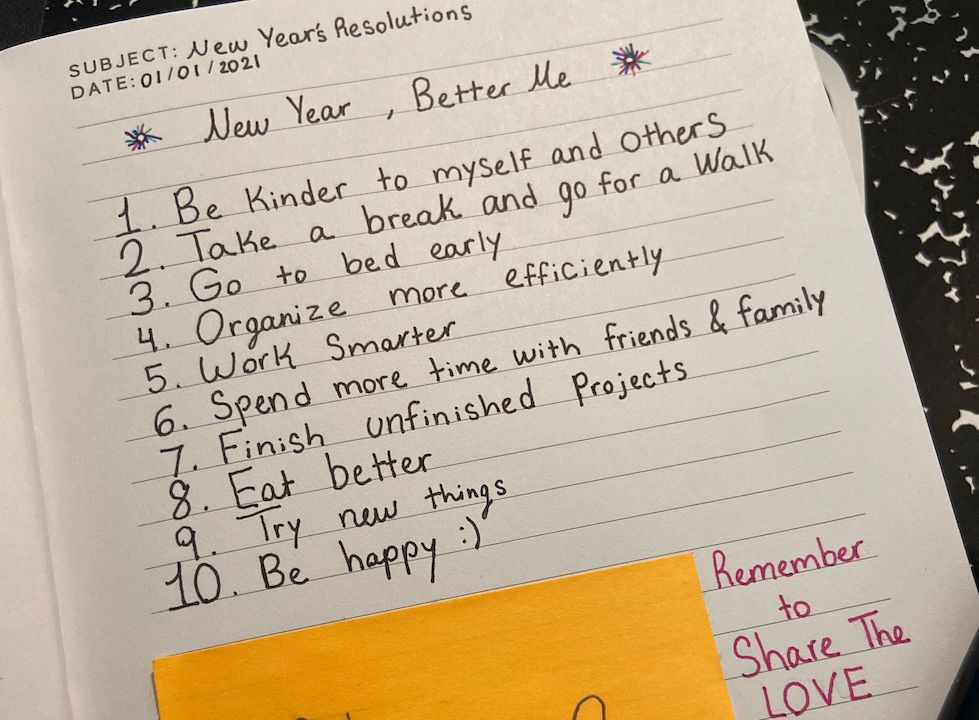 SUBJECT: New Year's Resolutions
DATE: 01/01/2021
New Year, Better Me
1. Be Kinder to myself and Others
2. Take a break and go for a Walk
3. Go to bed early
4. Organize more efficiently
5. Work Smarter
6. Spend more time with friends & family
7. Finish unfinished Projects
8. Eat better
9. Try new things
10. Be happy :)
Remember
to
Share The
LOVE